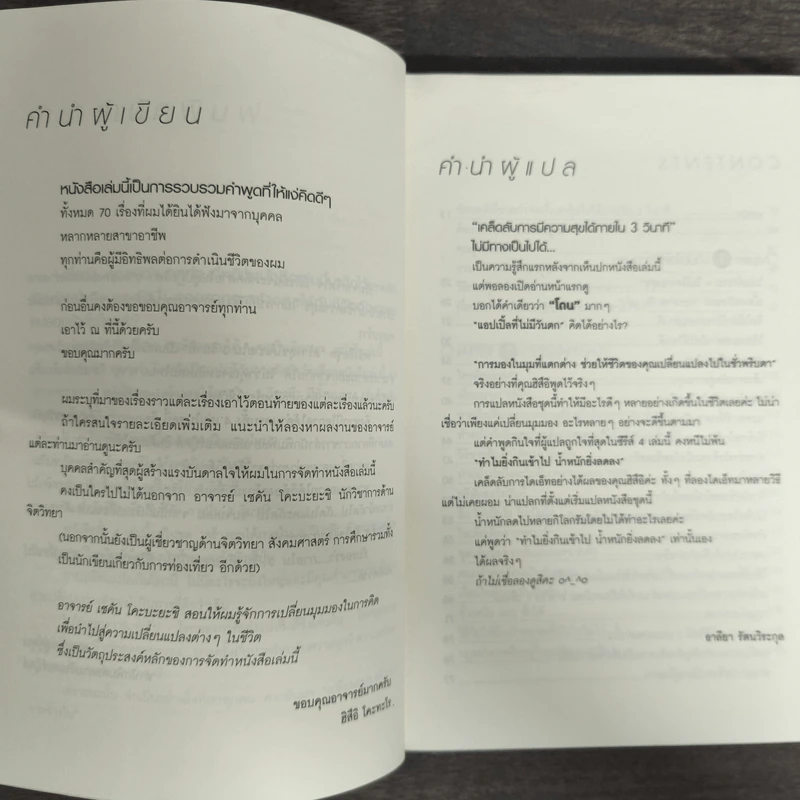 คำนำผู้เขียน
หนังสือเล่มนี้เป็นการรวบรวมคำพูดที่ให้แง่คิดดีๆ
ทั้งหมด 70 เรื่องที่ผมได้ยินได้ฟังมาจากบุคคล
หลากหลายสาขาอาชีพ
ทุกท่านคือผู้มีอิทธิพลต่อการดำเนินชีวิตของผม
ก่อนอื่นคงต้องขอขอบคุณอาจารย์ทุกท่าน
เอาไว้ ณ ที่นี้ด้วยครับ
ขอบคุณมากครับ
ผมระบุที่มาของเรื่องราวแต่ละเรื่องเอาไว้ตอนท้ายของแต่ละเรื่องแล้วนะครับ
ถ้าใครสนใจรายละเอียดเพิ่มเติม แนะนำให้ลองหาผลงานของอาจารย์
แต่ละท่านมาอ่านดูนะครับ
บุคคลสำคัญที่สุดผู้สร้างแรงบันดาลใจให้ผมในการจัดทำหนังสือเล่มนี้
คงเป็นใครไปไม่ได้นอกจาก อาจารย์ เซคัน โคะบะยะชิ นักวิชาการด้าน
จิตวิทยา
(นอกจากนั้นยังเป็นผู้เชี่ยวชาญด้านจิตวิทยา สังคมศาสตร์ การศึกษารวมทั้ง
เป็นนักเขียนเกี่ยวกับการท่องเที่ยว อีกด้วย)
อาจารย์ เซคัน โคะบะยะชิ สอนให้ผมรู้จักการเปลี่ยนมุมมองในการคิด
เพื่อนำไปสู่ความเปลี่ยนแปลงต่างๆ ในชีวิต
ซึ่งเป็นวัตถุประสงค์หลักของการจัดทำหนังสือเล่มนี้
ขอบคุณอาจารย์มากครับ
ฮิสึอิ โคะทะโร
คำนำผู้แปล
"เคล็ดลับการมีความสุขได้ภายใน 3 วินาที"
ไม่มีทางเป็นไปได้...
เป็นความรู้สึกแรกหลังจากเห็นปกหนังสือเล่มนี้
แต่พอลองเปิดอ่านหน้าแรกดู
บอกได้คำเดียวว่า "โดน" มากๆ
"แอปเปิ้ลที่ไม่มีวันตก" คิดได้อย่างไร?
"การมองในมุมที่แตกต่าง ช่วยให้ชีวิตของคุณเปลี่ยนแปลงไปในชั่วพริบตา"
จริงอย่างที่คุณฮิสึอิพูดไว้จริงๆ
การแปลหนังสือชุดนี้ทำให้มีอะไรดีๆ หลายอย่างเกิดขึ้นในชีวิตเลยค่ะ ไม่น่า
เชื่อว่าเพียงแค่เปลี่ยนมุมมอง อะไรหลายๆ อย่างจะดีขึ้นตามมา
แต่คำพูดกินใจที่ผู้แปลถูกใจที่สุดในซีรีส์ 4 เล่มนี้ คงหนีไม่พ้น
"ทำไมยิ่งกินเข้าไป น้ำหนักยิ่งลดลง"
เคล็ดลับการไดเอ็ทอย่างได้ผลของคุณฮิสึอิค่ะ ทั้งๆ ที่ลองไดเอ็ทมาหลายวิธี
แต่ไม่เคยผอม น่าแปลกที่ตั้งแต่เริ่มแปลหนังสือชุดนี้
น้ำหนักลดไปหลายกิโลกรัมโดยไม่ได้ทำอะไรเลยค่ะ
แค่พูดว่า "ทำไมยิ่งกินเข้าไป น้ำหนักยิ่งลดลง" เท่านั้นเอง
ได้ผลจริงๆ
ถ้าไม่เชื่อลองดูสิคะ o^_^o
อาลียา รัตนวิระกุล